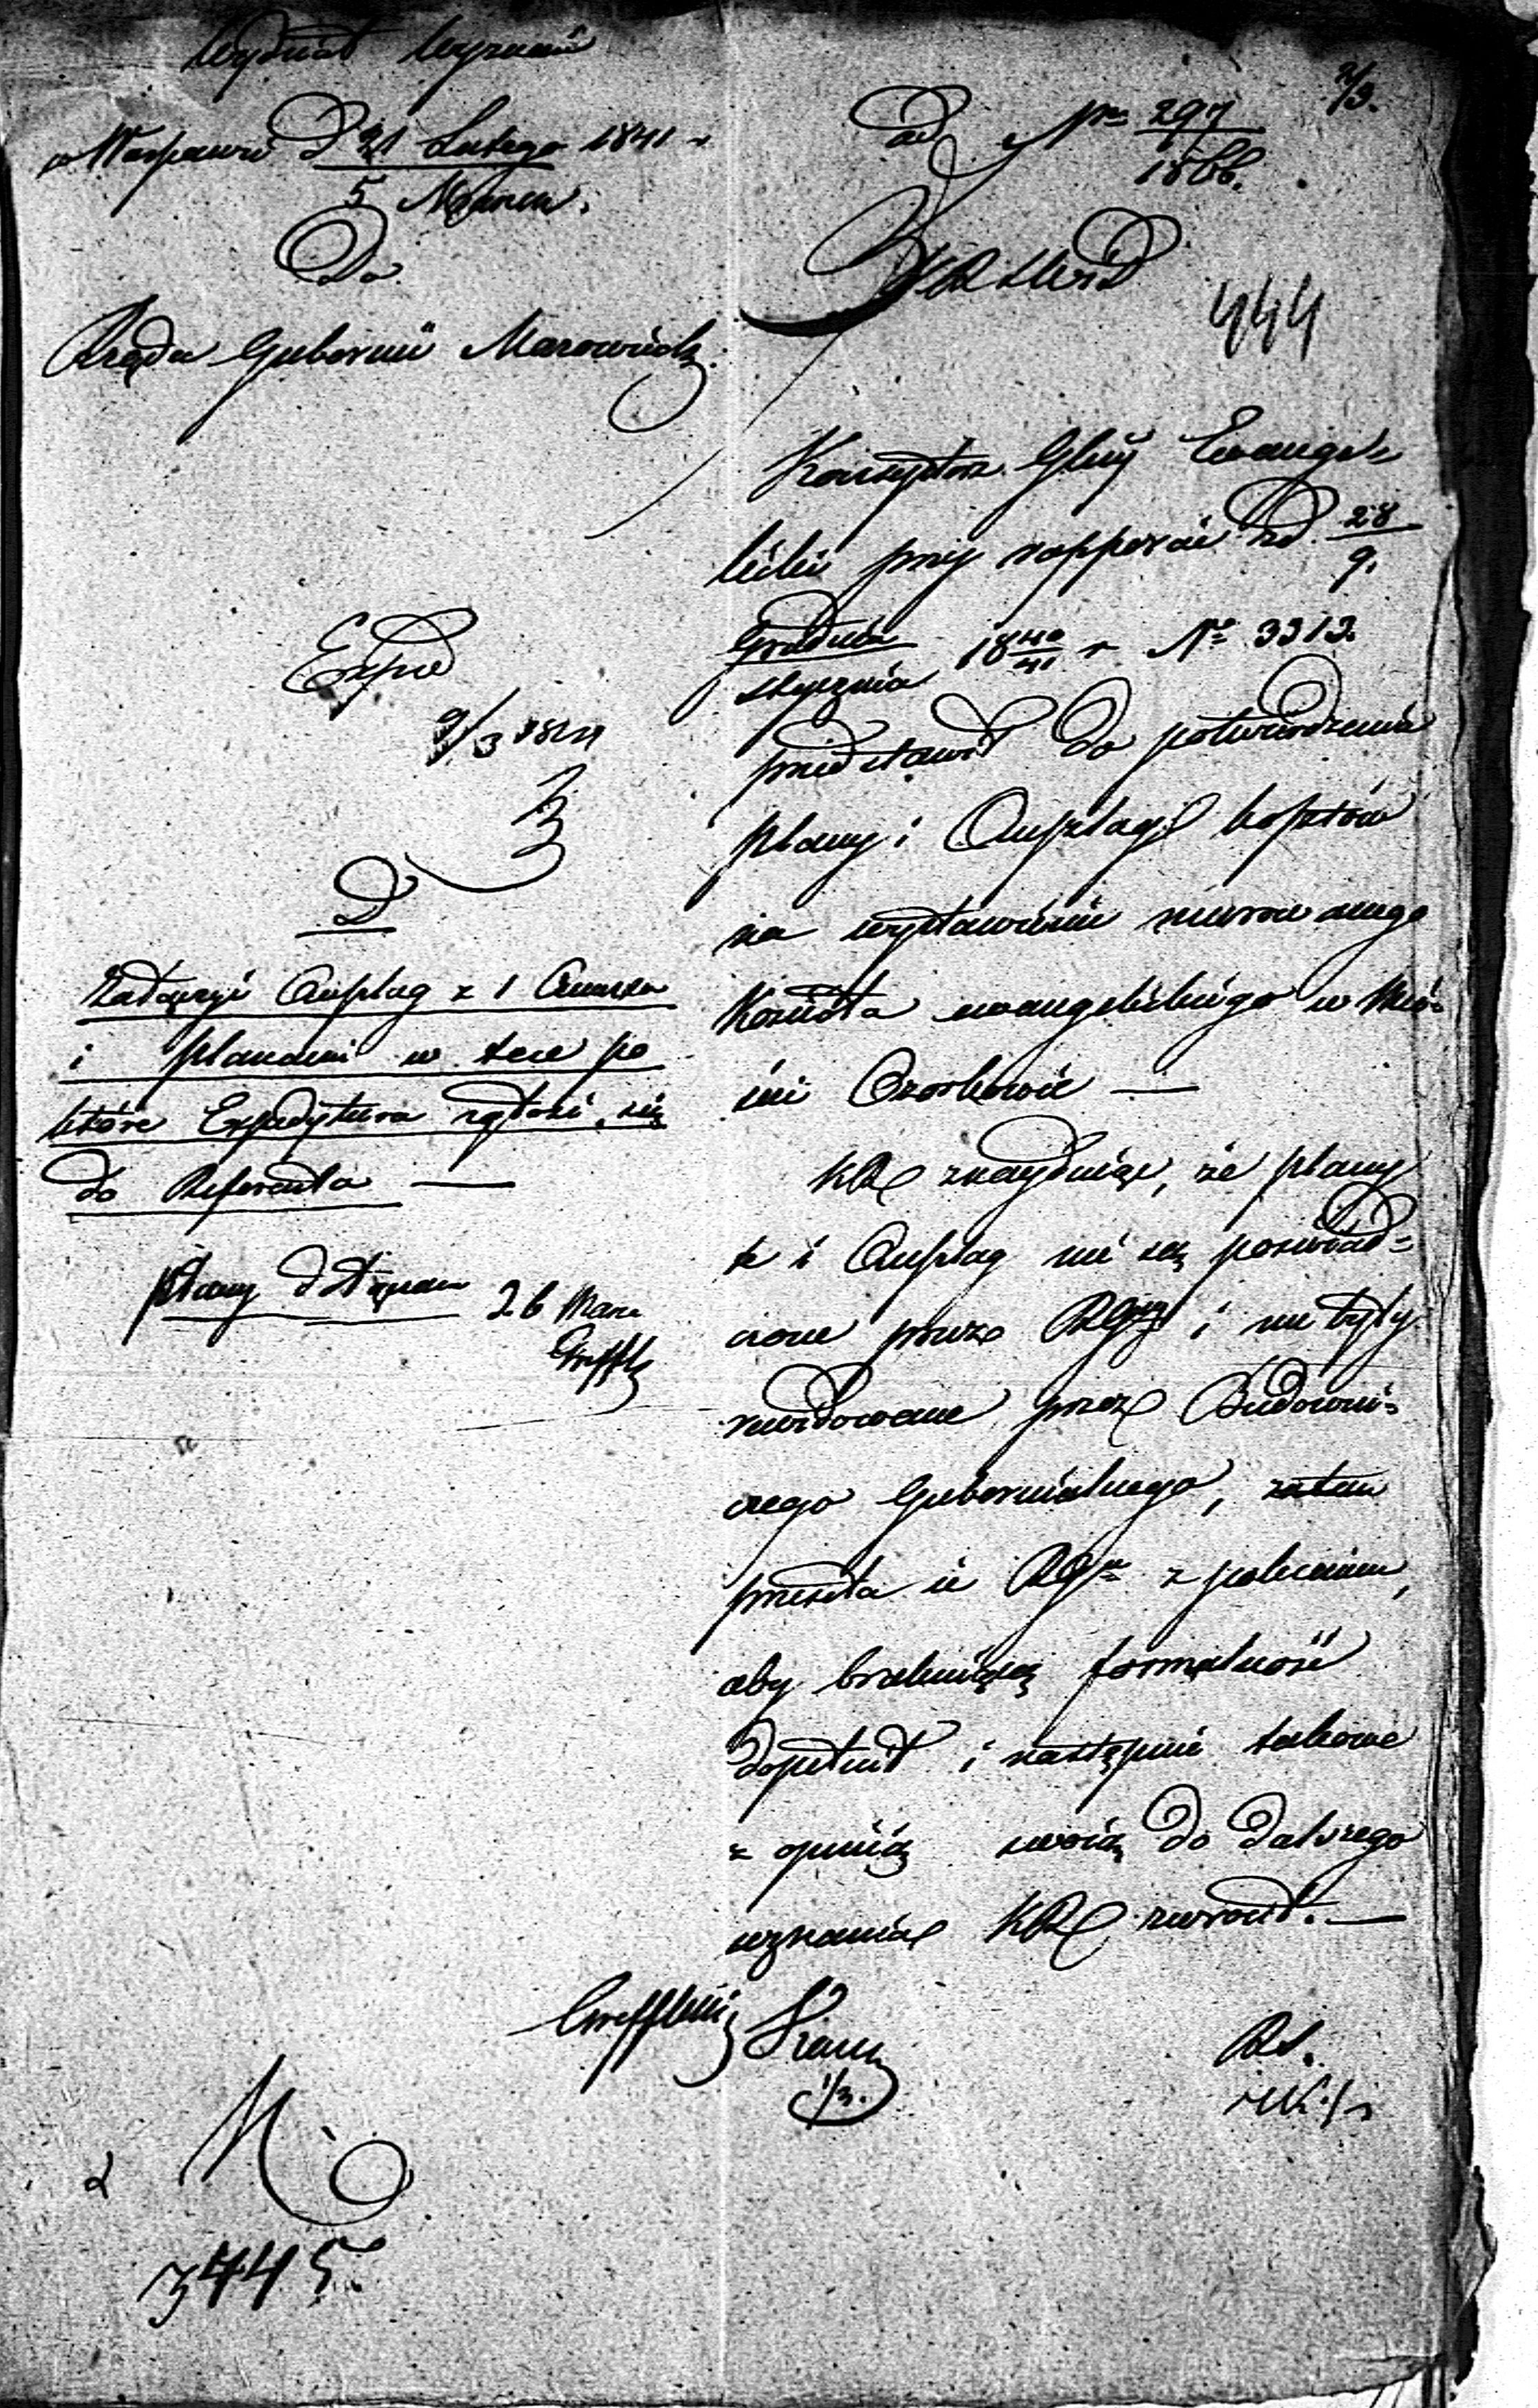 Wydział Wyznań
w Warszawie D 21 Lutego 1841 r
5 Marca.
Do
Rządu Gubernii Mazowieck.
Exped
9/3 1841
D
Załączyć Anszlag z 1 Annexą
i planami w tece po
które Expedytura zgłosi się
do Referenta —
plany dołączam 26 Marc
2/3.
ad Nro 297
1866.
KRSWiD
444
Konsystorz Glny Ewange=
licki przy rapporcie zd. 28
9.
Grudnia
Stycznia 18 40/41 r No 3313.
przedstawił do potwierdzenia
plany i Anszlagi kosztów
na wystawienie murowanego
Kościoła ewangelickiego w Mie=
ście Ozorkowie —
KR znayduiąc, że plany
te i Anszlag nie są poświad=
czone przez RG i nie były
rewidowane przez Budowni=
czego Gubernialnego, zatem
przesyła ie RGwi z poleceniem,
aby brakuiącą formalność
dopełnił i następnie takowe
z opinią swoią do dalszego
uznania KR zwrócił. —
1/3.
3445.